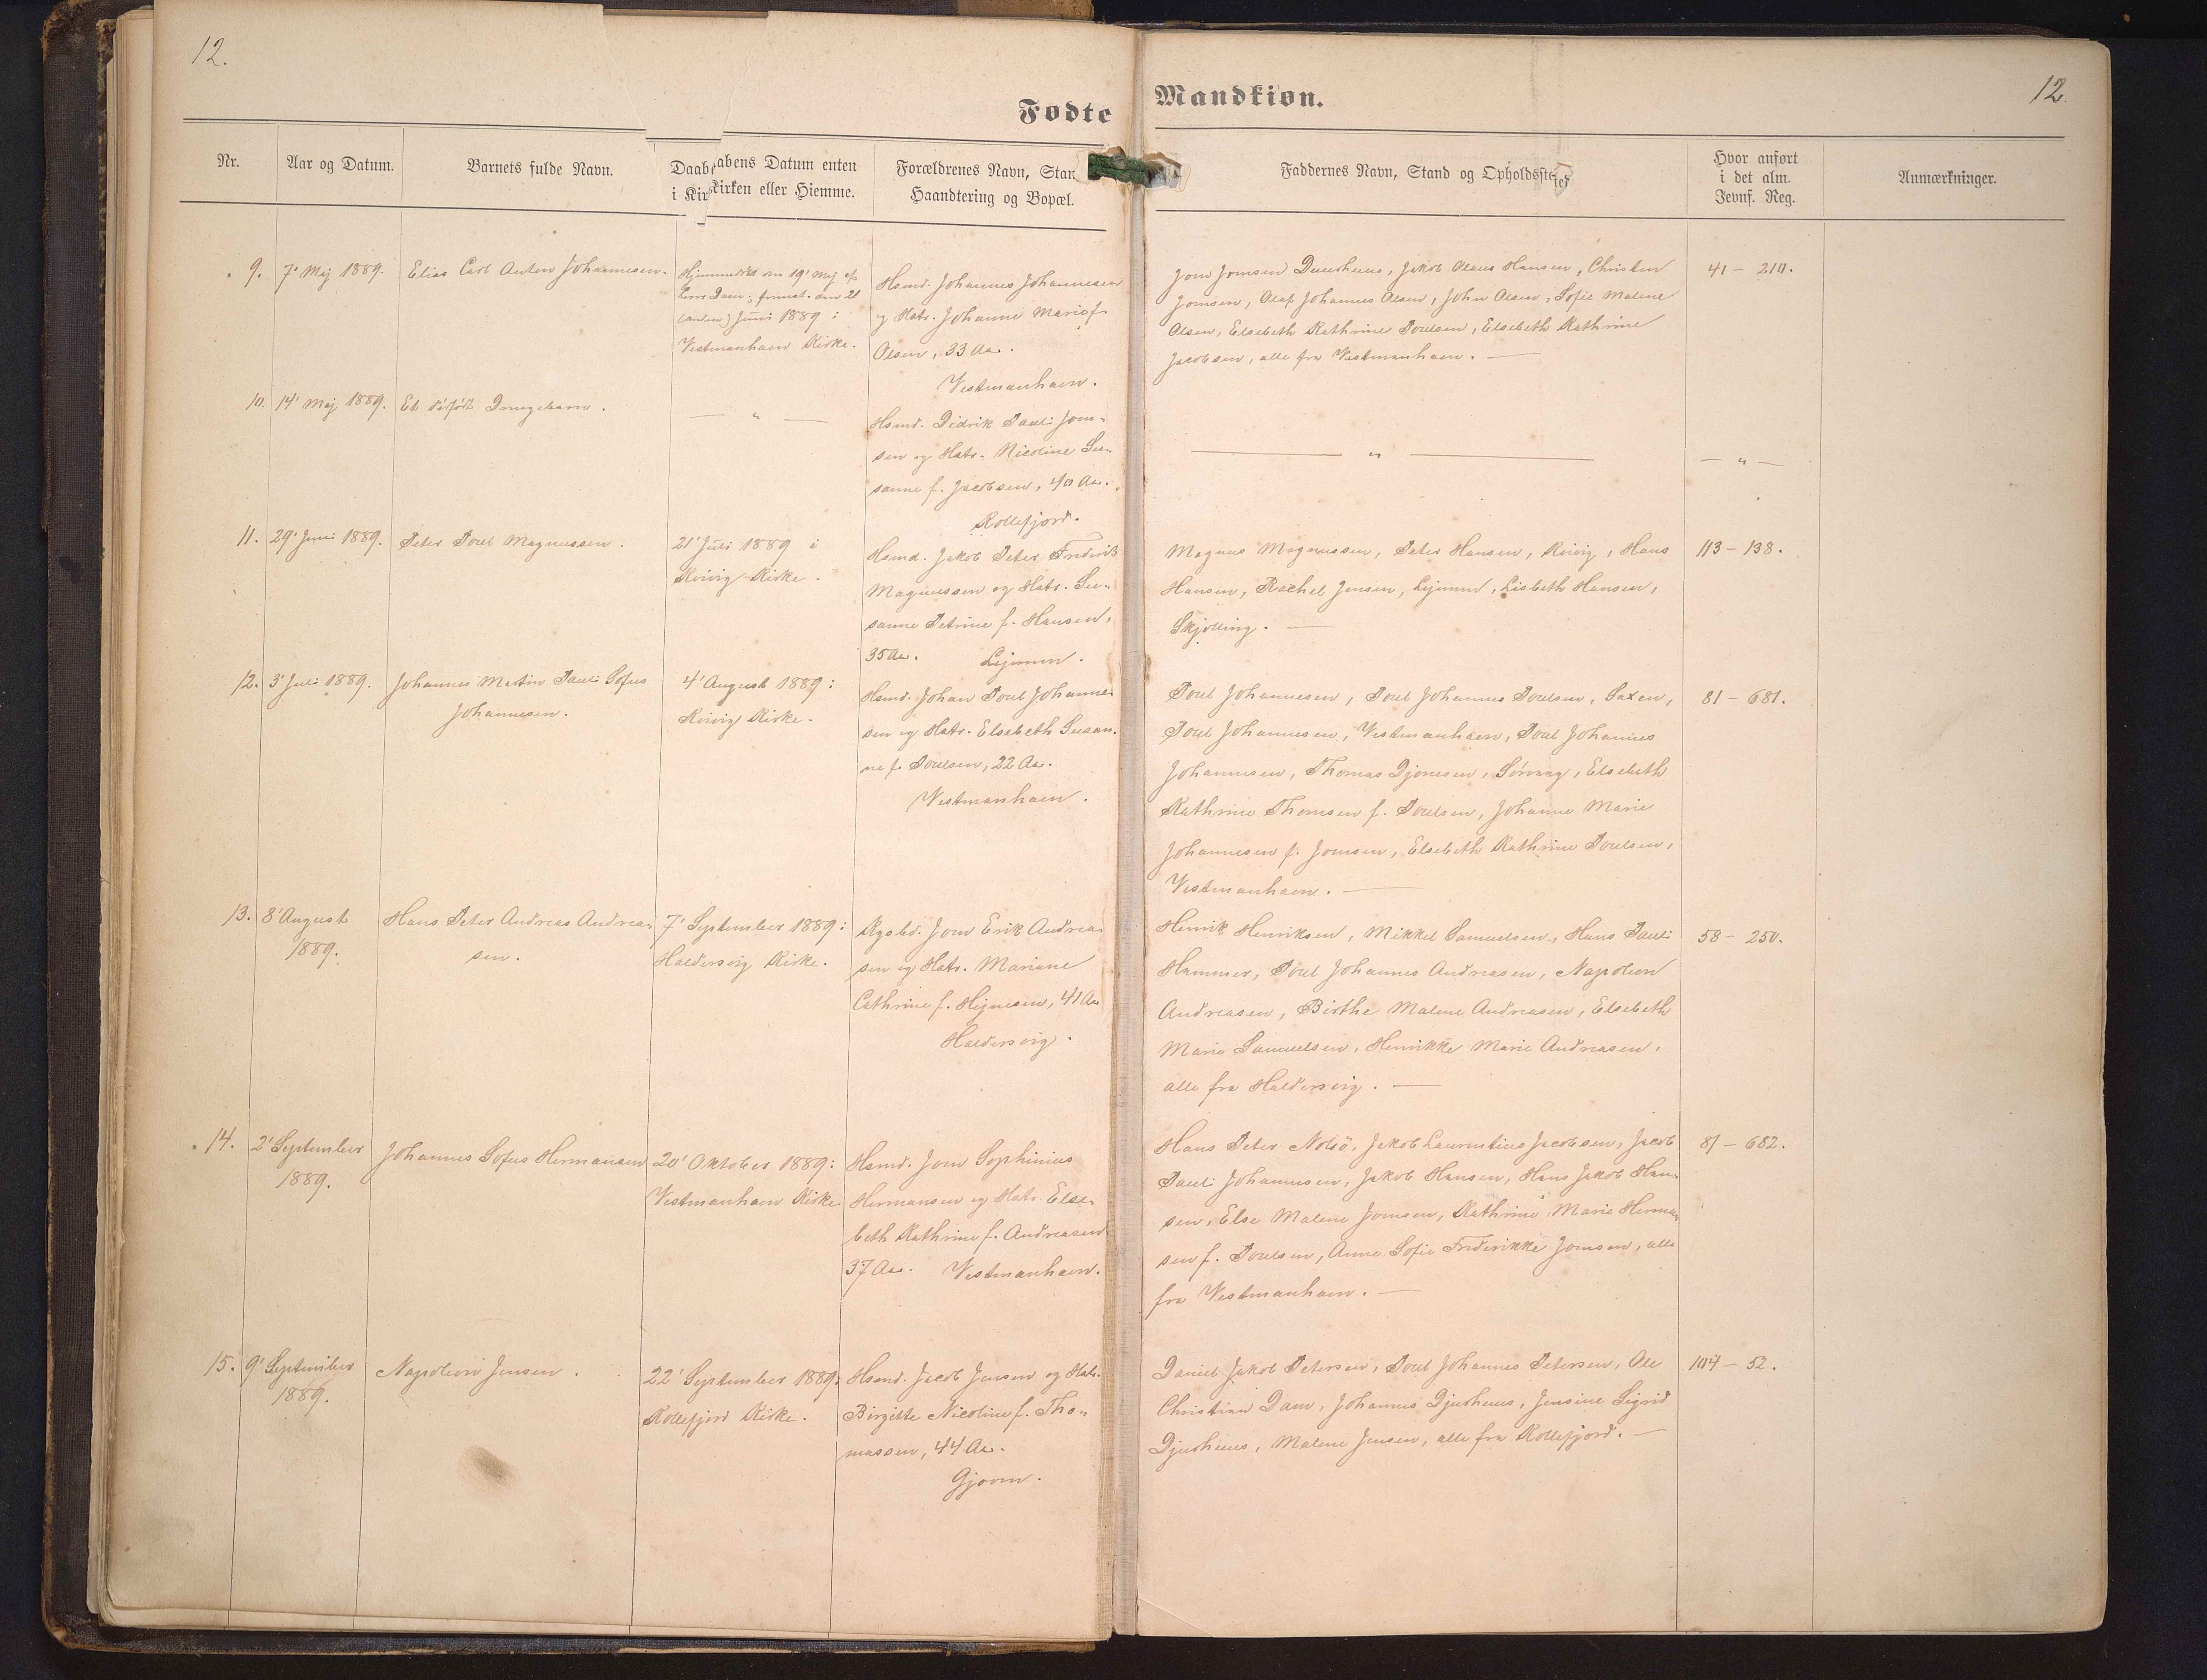 12.
12.
Fødte
Mandkiøn.
Nr.
Aar og Datum.
Barnets fulde Navn.
Daabens Datum enten
i Kirken eller Hiemme.
Forældrenes Navn, Stan
Haandtering og Bopæl.
Faddernes Navn, Stand og Opholdssted
Hvor anført
i det alm.
Jevnf. Reg.
Anmærkninger.
9.
7' Maj 1889.
Elias Carl Anton Johannesen.
Hjemmedøbt den 19' Maj af
Dam; fremst. den 21
Juni 1889 i
Vestmanhavn Kirke.
Hsmd. Johannes Johannesen
og Hstr. Johanne Marie f.
Olsen, 33 Aa.
Vestmanhavn.
Jom Jomsen Duurhuus, Jakob Olaus Hansen, Christen
Jomsen, Olaf Johannes Olsen, John Olsen, Sofie Malene
Olsen, Elsebeth Kathrine Poulsen, Elsebeth Kathrine
Jacobsen, alle fra Vestmanhavn. —
41 - 210.
10.
14' Maj 1889.
Et dødfødt Drengebarn.
— " —
Hsmd. Didrik Pauli Jom-
sen og Hstr. Nicoline Su-
sanne f. Jacobsen, 40 Aa.
Kollefjord.
— " —
— " —
11.
29' Juni 1889.
Peter Poul Magnussen.
21' Juli 1889 i
Kvivig Kirke.
Hsmd. Jakob Peter Frederik
Magnussen og Hstr. Su-
sanne Petrine f. Hansen,
35 Aa. Lejnum.
Magnus Magnussen, Peter Hansen, Kvivig, Hans
Hansen, Rachel Jensen, Lejnum, Lisbeth Hansen,
Skjelling. —
113 - 138.
12.
3' Juli 1889.
Johannes Martin Pauli Sofus
Johannesen.
4' August 1889 i
Kvivig Kirke.
Hsmd. Johan Poul Johanne-
sen og Hstr. Elsebeth Susan-
ne f. Poulsen, 22 Aa.
Vestmanhavn.
Poul Johannesen, Poul Johannes Poulsen, Saxen,
Poul Johannesen, Vestmanhavn, Poul Johannes
Johannesen, Thomas Djonesen, Sørvaag, Elsebeth
Kathrine Thomsen f. Poulsen, Johanne Marie
Johannesen f. Jomsen, Elsebeth Kathrine Poulsen,
Vestmanhavn. —
81 - 681.
13.
8' August
1889.
Hans Peter Andreas Andrea-
sen.
7' September 1889 i
Haldersvig Kirke.
Kgsbd. Jom Erik Andrea-
sen og Hstr. Mariane
Cathrine f. Hejnesen, 41 Aa
Haldersvig.
Henrik Henriksen, Mikkel Samuelsen, Hans Pauli
Hammer, Poul Johannes Andreasen, Napoleon
Andreasen, Birthe Malene Andreasen, Elsebeth
Marie Samuelsen, Henrikke Marie Andreasen,
alle fra Haldersvig. —
58 - 250.
14.
2' September
1889.
Johannes Sofus Hermansen
20' Oktober 1889 i
Vestmanhavn Kirke
Hsmd. Jom Sophinius
Hermansen og Hstr. Else-
beth Kathrine f. Andreasen
37 Aa. Vestmanhavn.
Hans Peter Nolsø, Jakob Laurentius Jacobsen, Jacob
Pauli Johannesen, Jakob Hansen, Hans Jakob Han-
sen, Else Malene Jomsen, Kathrine Marie Herman-
sen f. Poulsen, Anne Sofie Frederikke Jomsen, alle
fra Vestmanhavn. —
81 - 682.
15.
9' September
1889.
Napoleon Jensen.
22' September 1889 i
Kollefjord Kirke.
Hsmd. Jacob Jensen og Hstr.
Birgitte Nicoline f. Tho-
massen, 44 Aa.
Gjovn.
Daniel Jakob Petersen, Poul Johannes Petersen, Ole
Christian Dam, Johannes Djurhuus, Jensine Sigrid
Djurhuus, Malene Jensen, alle fra Kollefjord. —
104 - 52.